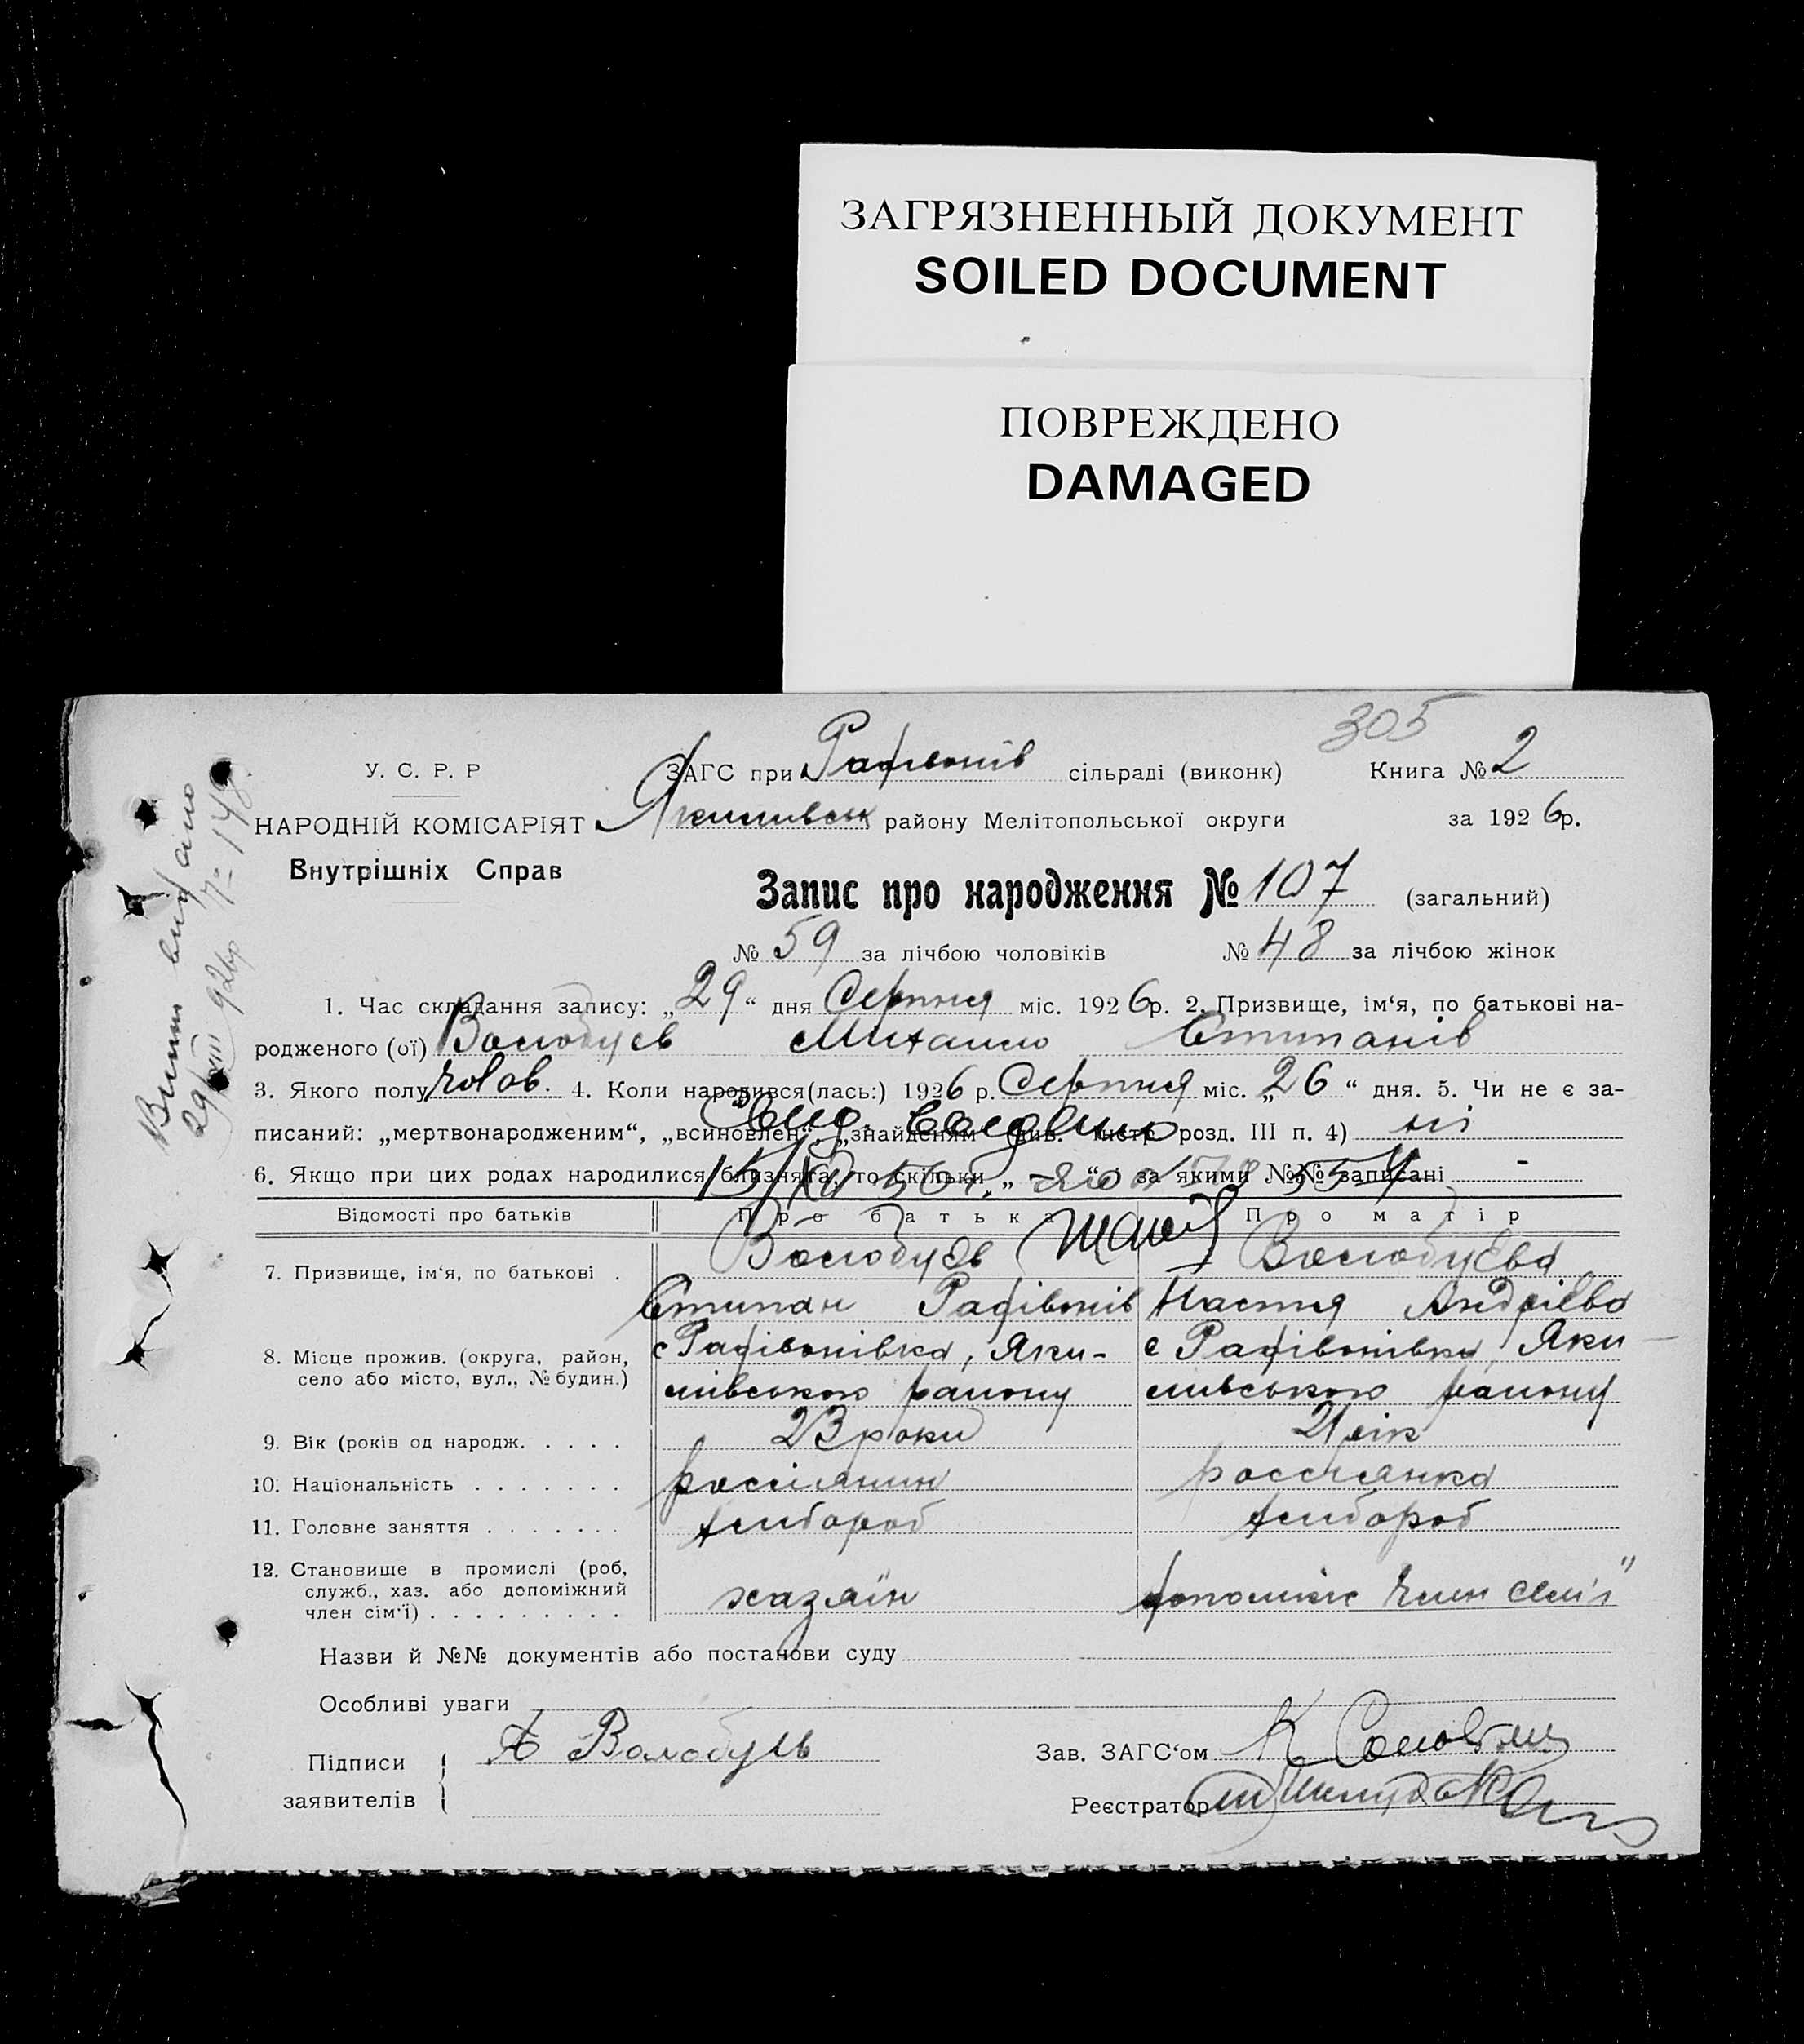 ЗАГРЯЗНЕННЫЙ ДОКУМЕНТ
SOILED DOCUMENT
ПОВРЕЖДЕНО
DAMAGED
305
У. С. Р. Р
ЗАГС при Рафівонів сільраді (виконк) Книга № 2
НАРОДНІЙ КОМІСАРІЯТ Якимивськ району Мелітопольської округи за 1926р.
Внутрішніх Справ
Запис про народження № 107 (загальний)
№ 59 за лічбою чоловіків № 48 за лічбою жінок
1. Час складання запису: „29“ дня Серпня міс. 1926р. 2. Призвище, ім‘я, по батькові на-
родженого (ої) Волобуєв Михайло Степанів
3. Якого полу чолов. 4. Коли народився(лась:) 1926 р. Серпня міс. „26“ дня. 5. Чи не є за-
писаний: „мертвонародженим“, „всиновлен“, „знайденям“ (див. інстр розд. III п. 4) ні
6. Якщо при цих родах народилися близнята, то скільки „ “ за якими №№ записані -
Відомості про батьків Про батька Про матір
7. Призвище, ім‘я, по батькові . Волобуєв Волобуєва
Степан Рафівонів Настя Андрієва
8. Місце прожив. (округа, район, с Рафівонівка, Яки- с Рафівонівка, Яки
село або місто, вул., № будин.) мівського району мивського району
9. Вік (років од народж. . . . . 23 роки 21 рік
10. Національність . . . . . . . россіянин россіянка
11. Головне заняття . . . . . . . хлибороб хлибороб
12. Становище в промислі (роб,
служб., хаз. або допоміжний хазяїн допоміжн член семʼї
член сім‘ї) . . . . . . . . .
Назви й №№ документів або постанови суду
Особливі уваги
Підписи А Волобуєв Зав. ЗАГС‘ом К
заявителів Реєстратор
Випис видано
29/VIII 926р № 148